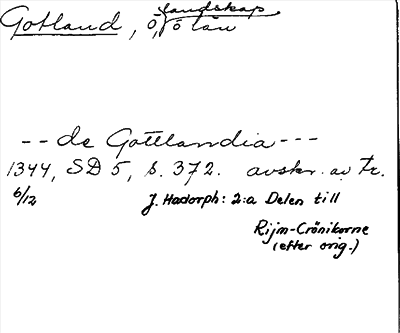 landskap
Gotland, ö, o län
-- de Gottlandia ---
1344, SD 5, s. 372. avskr. av Tr.
6/12 J. Hadorph: 2:a Delen till
Rijm-Crönikorne
(efter orig.)